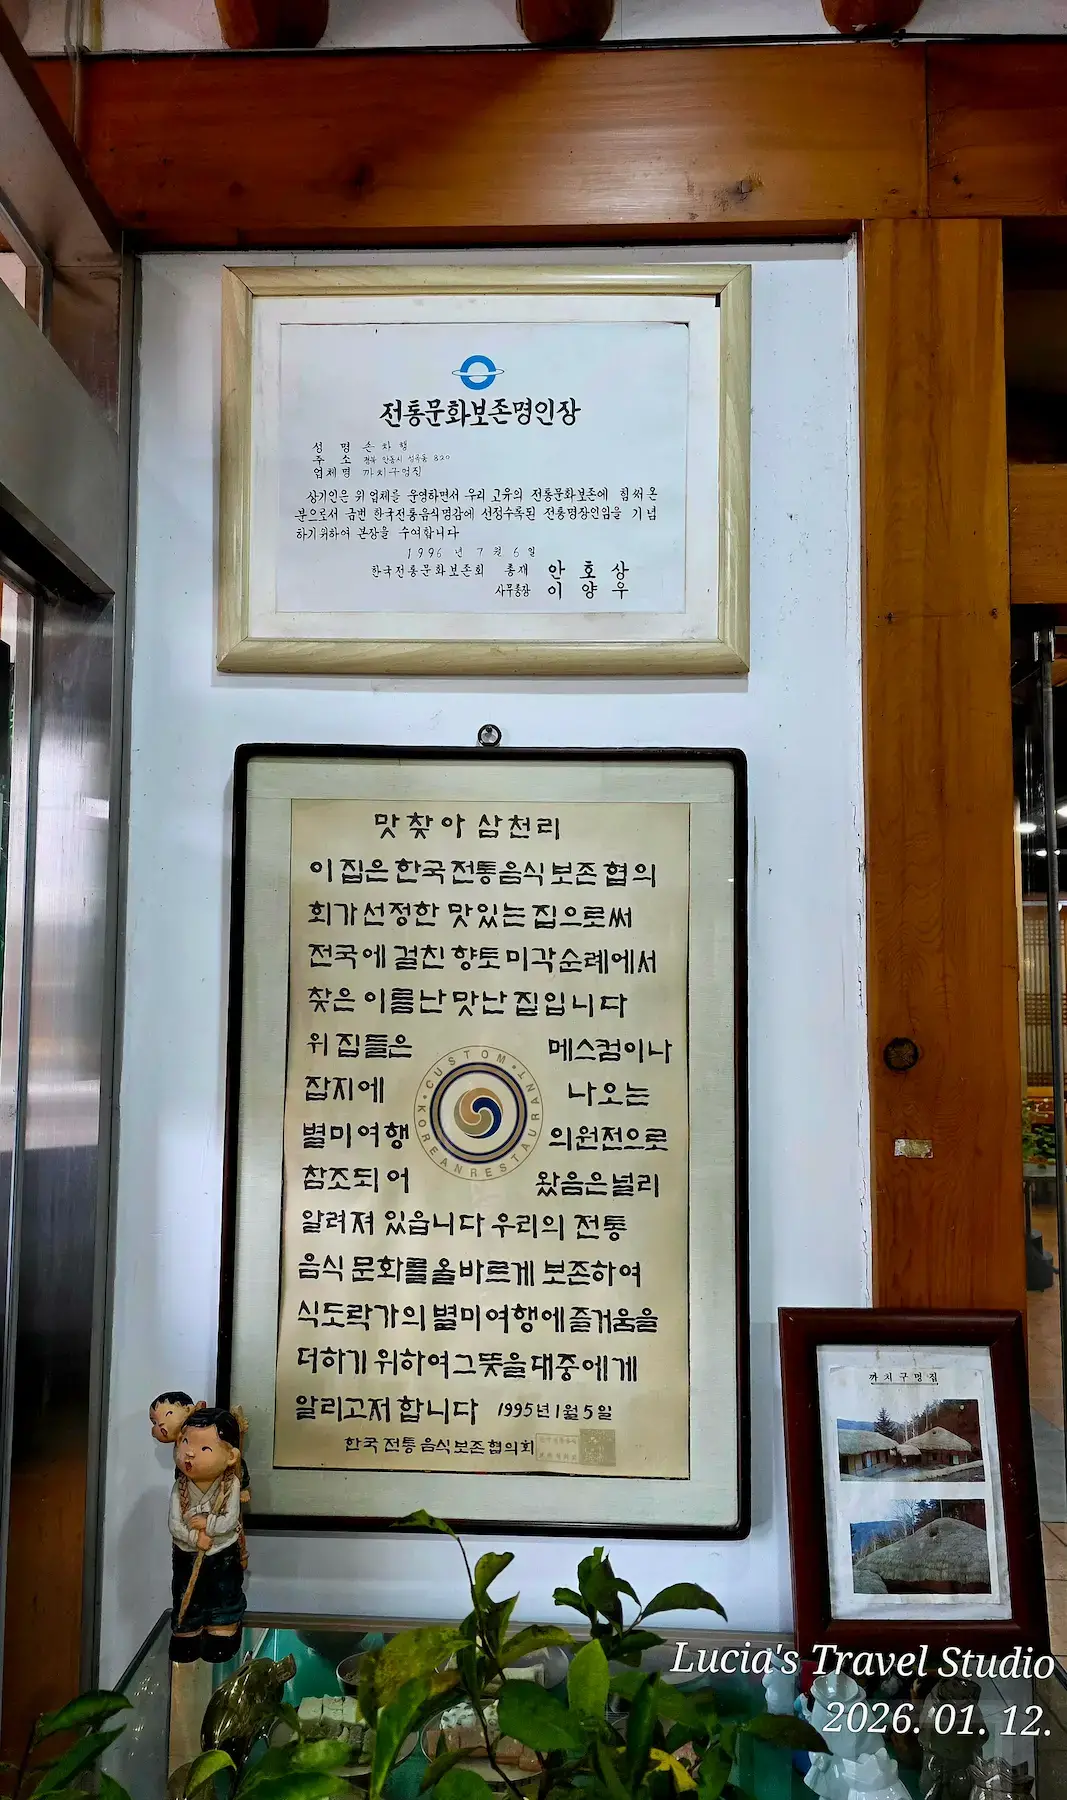 전통문화보존명인장
성 명 손 차 행
주 소 경북 안동시 성곡동 820
업체명 까치구멍집
상기인은 위 업체를 운영하면서 우리 고유의 전통문화보존에 힘써온
분으로서 금번 한국전통음식명감에 선정수록된 전통명장인임을 기념
하기위하여 본장을 수여합니다
1996 년 7 월 6 일
한국전통문화보존회 총재 안 호 상
사무총장 이 양 우
맛찾아 삼천리
이 집은 한국전통음식 보존 협의
회가 선정한 맛있는 집으로써
전국에 걸친 향토 미각순례에서
찾은 이름난 맛난 집입니다
위 집들은 메스컴이나
잡지에 나오는
별미여행 의원전으로
참조되어 왔음은널리
알려져 있읍니다 우리의 전통
음식 문화를 올바르게 보존하여
식도락가의 별미여행에 즐거움을
더하기 위하여 그뜻을 대중에게
알리고저 합니다 1995년 1월 5일
한국 전통 음식 보존 협의회
CUSTOM • KOREAN RESTAURANT •
까치구멍집
Lucia's Travel Studio
2026. 01. 12.